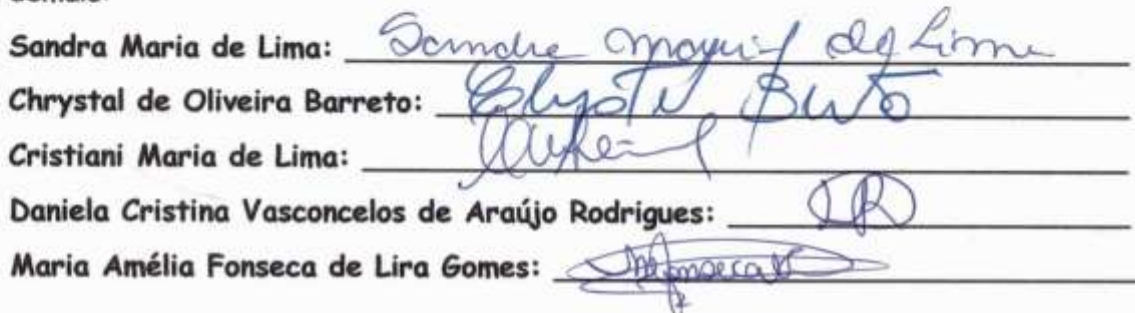 Sandra Maria de Lima: Sandra Maria de Lima
Chrystal de Oliveira Barreto:
Cristiani Maria de Lima:
Daniela Cristina Vasconcelos de Araújo Rodrigues:
Maria Amélia Fonseca de Lira Gomes: